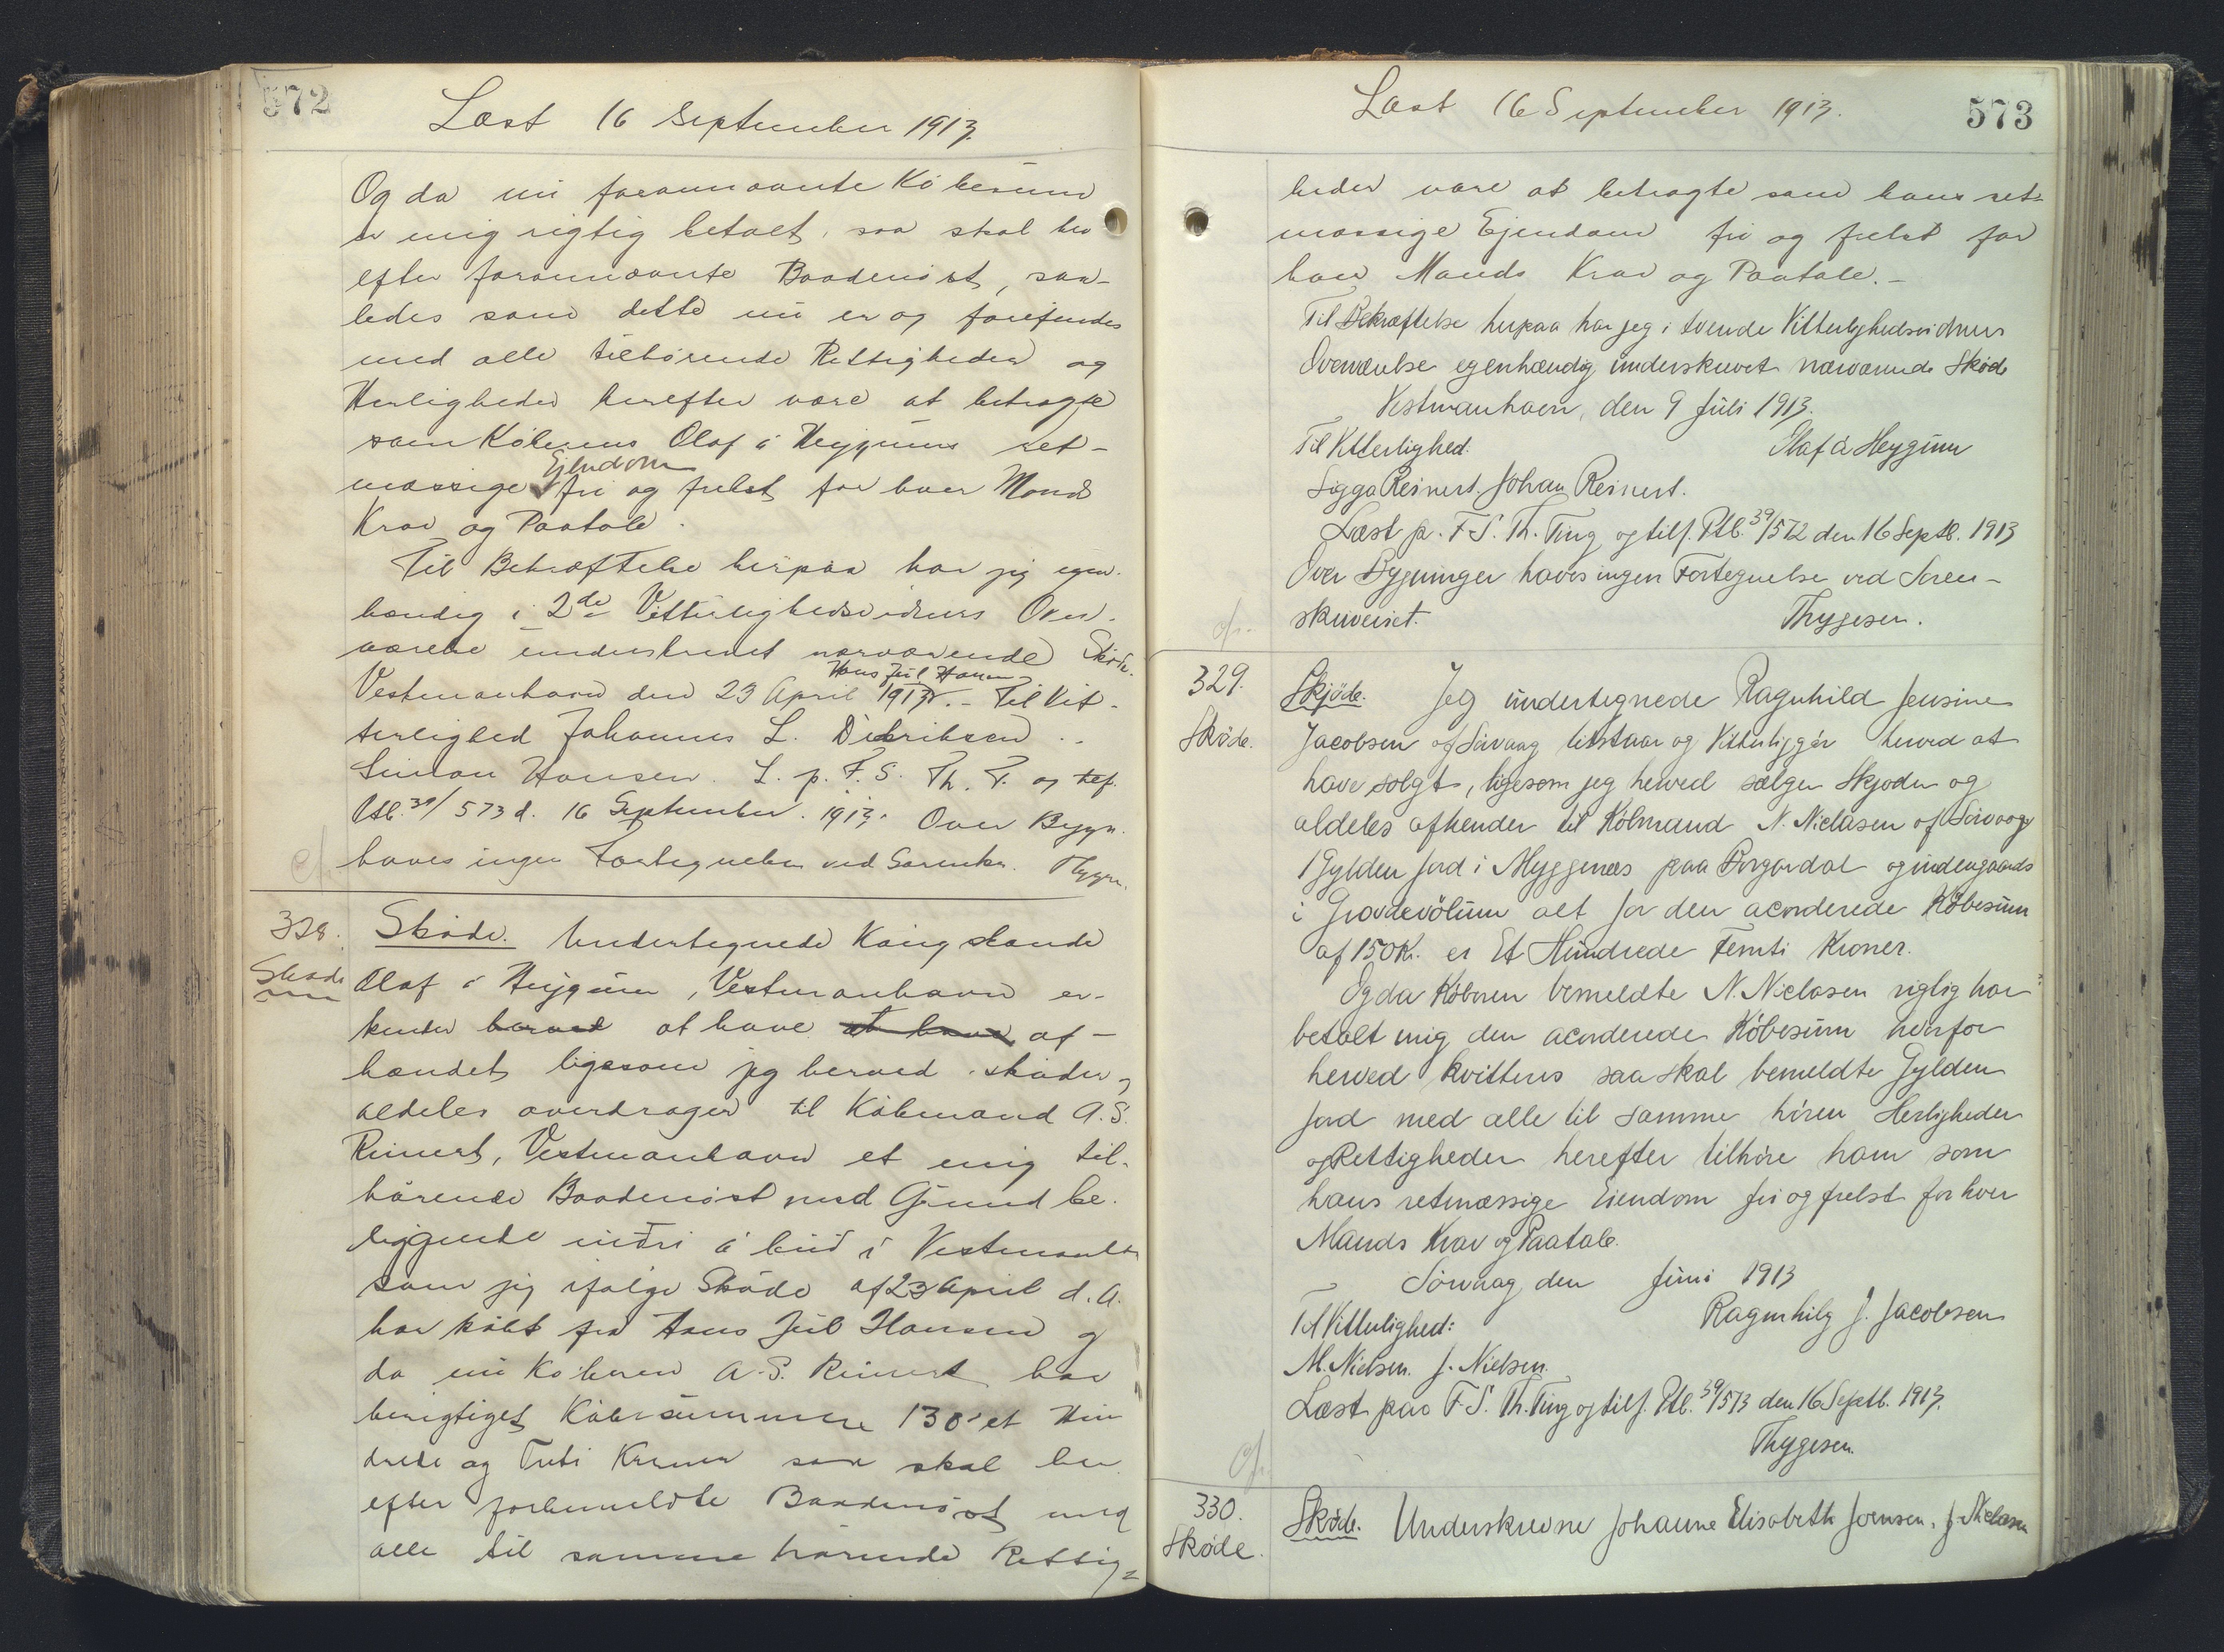 572
Læst 16 September 1913.
Og da nu forannævnte Købesum
er mig rigtig betalt, saa skal her
efter forannævnte Baadenøst, saa-
ledes som dette nu er og forefindes
med alle tilhørende Rettigheder og
Herligheder herefter være at betragte
som Køberens Olaf á Heygums ret-
mæssige Ejendom fri og frelst for hver Mands
Krav og Paatale.
Til Bekræftelse herpaa har jeg egen-
hændig i 2de Vitterlighedsvidners Over-
værelse underskrevet nærværende Skøde.
Vestmanhavn den 23 April 1913. Hans Juul Hansen - Til Vit-
terlighed Johannes L. Didriksen ..
Simon Hansen. L. p. F. S. Th. T. og tilf.
Ptb. 39/573 d. 16 September 1913. Over Bygn.
haves ingen Fortegnelse ved Sorenskr. Thygesen.
328.
Skøde
Skøde. Undertegnede Kongsbonde
Olaf á Heygum, Vestmanhavn er-
kender herved at have at have af-
hændet ligesom jeg herved skøder og
aldeles overdrager til Købmand A. S.
Reinert, Vestmanhavn et mig til-
hørende Baadenøst med Grund be-
liggende niðri á búð i Vestmanhn
som jeg ifølge Skøde af 23 April d. A.
har købt fra Hans Juul Hansen og
da nu Køberen A. S. Reinert har
berigtiget Købesummen 130 et Hun
drede og Treti Kroner saa skal her
efter forbemeldte Baadenøst med
alle til samme hørende Rettig=
573
Læst 16 September 1913.
heder være at betragte som hans ret=
mæssige Ejendom fri og frelst for
hver Mands Krav og Paatale. -
Til Bekræftelse herpaa har jeg i tvende Vitterlighedsvidners
Overværelse egenhændig underskrevet nærværende Skøde
Vestmanhavn, den 9 Juli 1913.
Til Vitterlighed. Olaf á Heygum
Sigga Reinert. Johan Reinert.
Læst p. F. S. Th. Ting og tilf. Ptb. 39/572 den 16 Septb. 1913
Over Bygninger haves ingen Fortegnelse ved Soren-
skriveriet. Thygesen.
329.
Skøde.
Skjøde. Jeg undertegnede Ragnhild Jensine
Jacobsen af Sørvaag tilstaar og Vitterliggør herved at
have solgt, ligesom jeg herved sælger Skjøder og
aldeles afhender til Købmand N. Niclasen af Sørvaag
1 Gylden Jord i Myggenæs paa Borgardal og indengaards
i Gravdevölum alt for den acorderede Købesum
af 150 Kr. er Et Hundrede Femti Kroner.
Og da Køberen bemeldte N. Niclasen rigtig har
betalt mig den acorderede Købesum hvorfor
herved kvitteres saa skal bemeldte Gylden
Jord med alle til samme hören Herligheder
og Rettigheder herefter tilhøre ham som
hans retmæssige Eiendom fri og frelst for hver
Mands Krav og Paatale.
Sørvaag den Juni 1913
Til Vitterlighed: Ragnhild J. Jacobsen
M. Nielsen. J. Nielsen.
Læst paa F. S. Th. Ting og tilf. Ptb. 39/573 den 16 Septb. 1913.
Thygesen.
330.
Skøde.
Skøde. Underskrevne Johanne Elisabeth Joensen, J. Niclasen